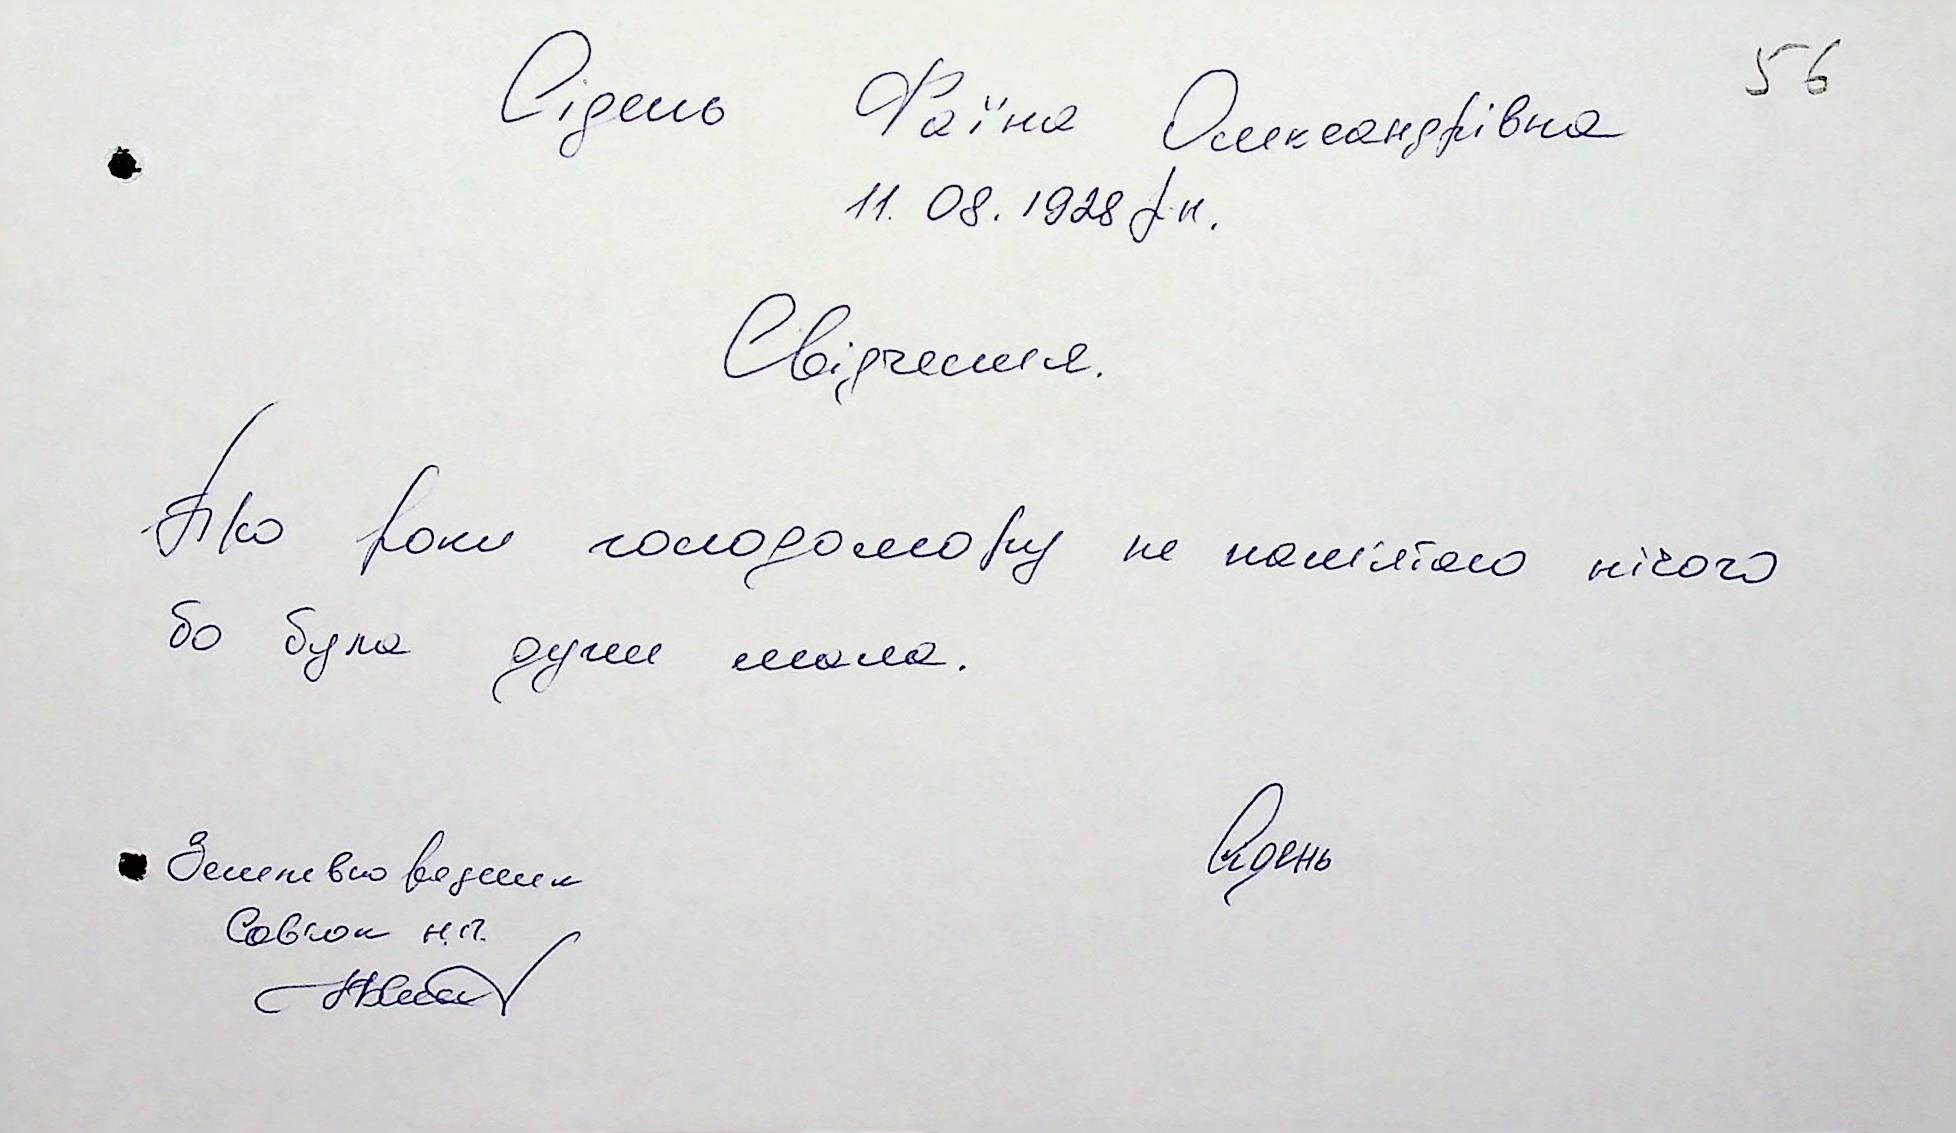 56
Сідень Фаїна Олександрівна
11.08.1928 р.н.
Свідчення.
Про роки голодомору не памʼятаю нічого
бо була дуже мала.
Сідень
Землевпорядник
Савлюк Н.П.